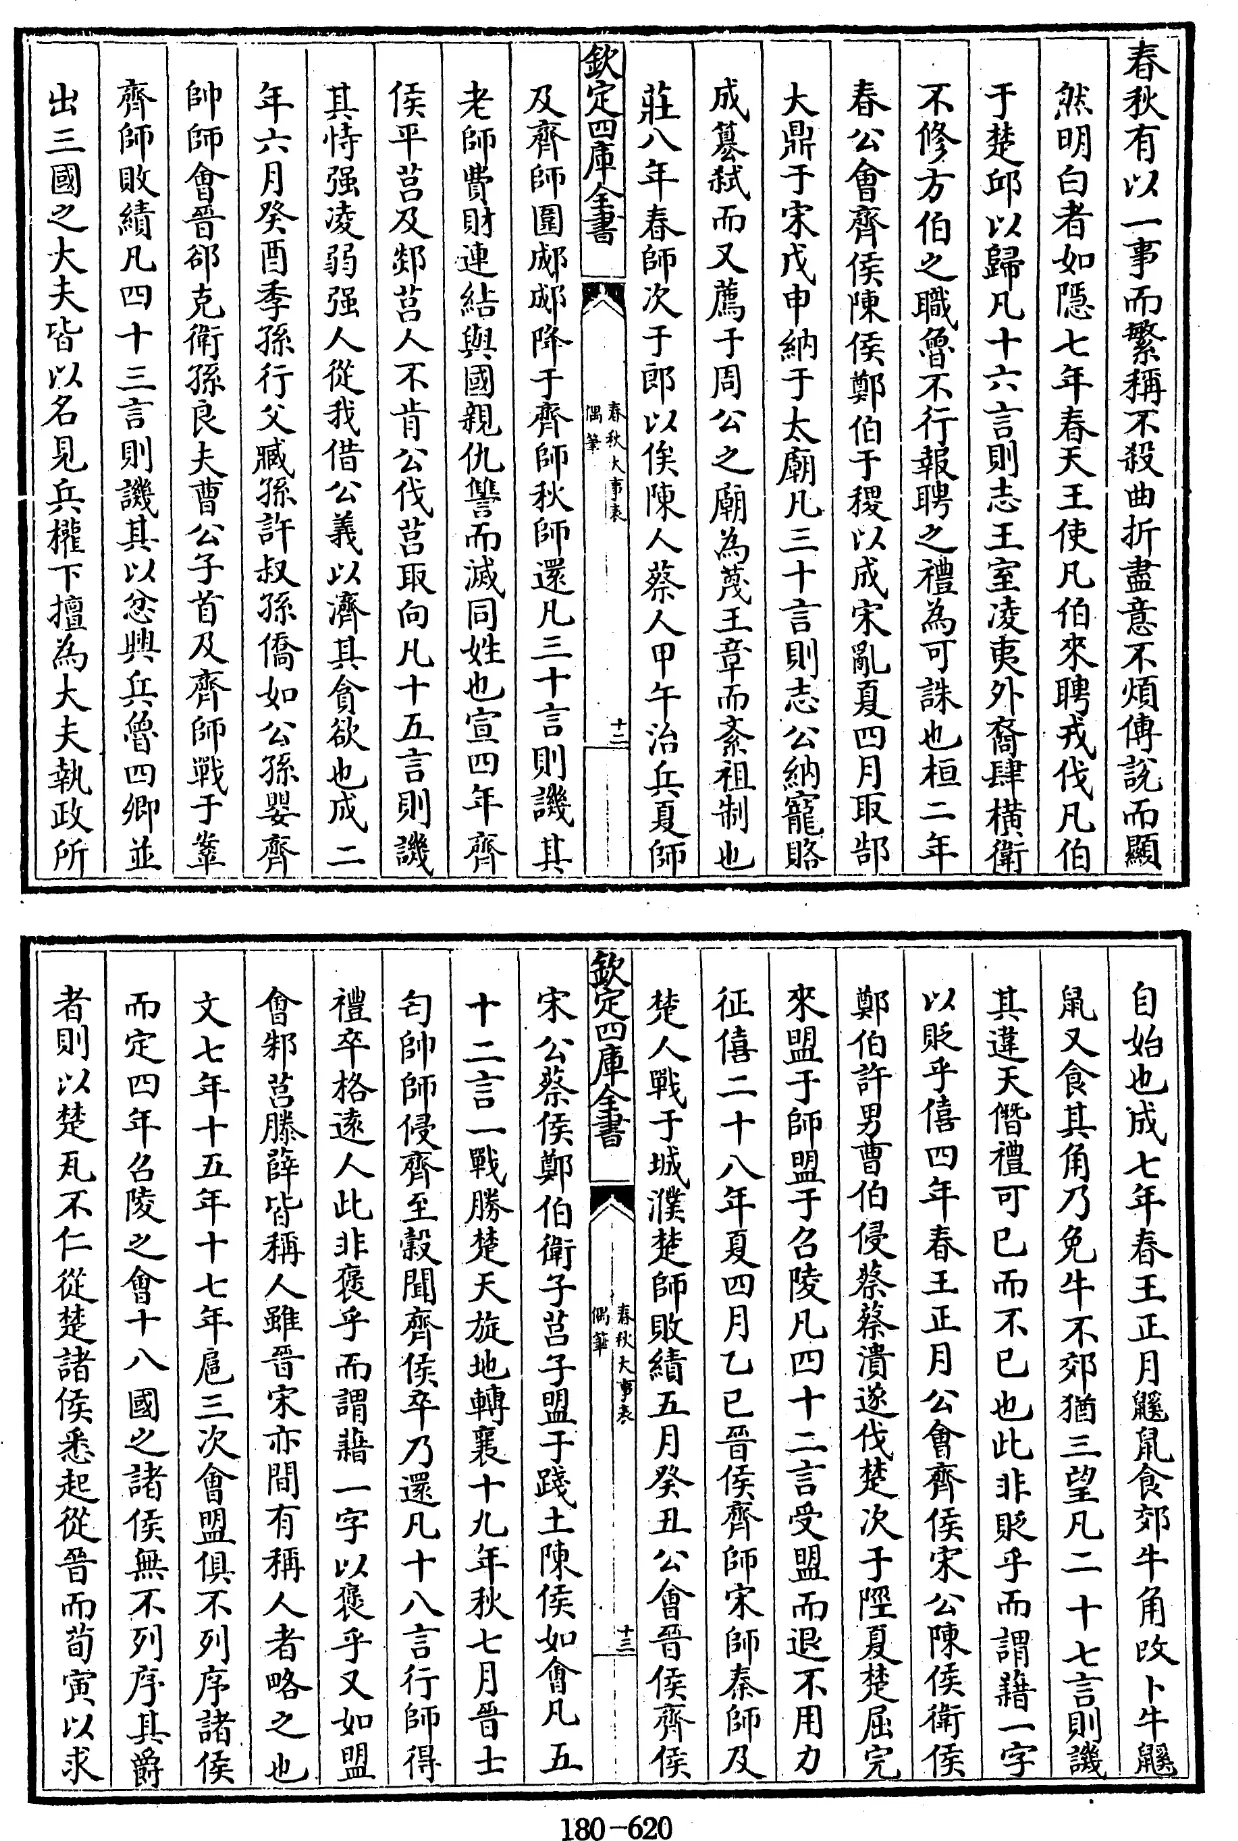 春秋有以一事而繁稱不殺曲折盡意不煩傳說而顯
然明白者如隱七年春天王使凡伯來聘戎伐凡伯
于楚邱以歸凡十六言則志王室凌夷外裔肆橫衛
不修方伯之職魯不行報聘之禮為可誅也桓二年
春公會齊侯陳侯鄭伯于稷以成宋亂夏四月取郜
大鼎于宋戊申納于太廟凡三十言則志公納寵賂
成簒弑而又薦于周公之廟為蔑王章而紊祖制也
莊八年春師次于郎以俟陳人蔡人甲午治兵夏師
欽定四庫全書
春秋大事表
偶筆
十二
及齊師圍郕郕降于齊師秋師還凡三十言則譏其
老師費財連結與國親仇讐而滅同姓也宣四年齊
侯平莒及郯莒人不肯公伐莒取向凡十五言則譏
其恃强凌弱强人從我借公義以濟其貪欲也成二
年六月癸酉季孫行父臧孫許叔孫僑如公孫嬰齊
帥師會晉郤克衛孫良夫曹公子首及齊師戰于鞌
齊師敗績凡四十三言則譏其以忿興兵魯四卿並
出三國之大夫皆以名見兵權下擅為大夫執政所
自始也成七年春王正月鼷鼠食郊牛角改卜牛鼷
鼠又食其角乃免牛不郊猶三望凡二十七言則譏
其違天僭禮可已而不已也此非貶乎而謂藉一字
以貶乎僖四年春王正月公會齊侯宋公陳侯衛侯
鄭伯許男曹伯侵蔡蔡潰遂伐楚次于陘夏楚屈完
來盟于師盟于召陵凡四十二言受盟而退不用力
征僖二十八年夏四月乙巳晉侯齊師宋師秦師及
楚人戰于城濮楚師敗績五月癸丑公會晉侯齊侯
欽定四庫全書
春秋大事表
偶筆
十三
宋公蔡侯鄭伯衛子莒子盟于踐土陳侯如會凡五
十二言一戰勝楚天旋地轉襄十九年秋七月晉士
匄帥師侵齊至穀聞齊侯卒乃還凡十八言行師得
禮卒格遠人此非褒乎而謂藉一字以褒乎又如盟
會邾莒滕薛皆稱人雖晉宋亦間有稱人者略之也
文七年十五年十七年扈三次會盟俱不列序諸侯
而定四年召陵之會十八國之諸侯無不列序其爵
者則以楚瓦不仁從楚諸侯悉起從晉而荀寅以求
180-620